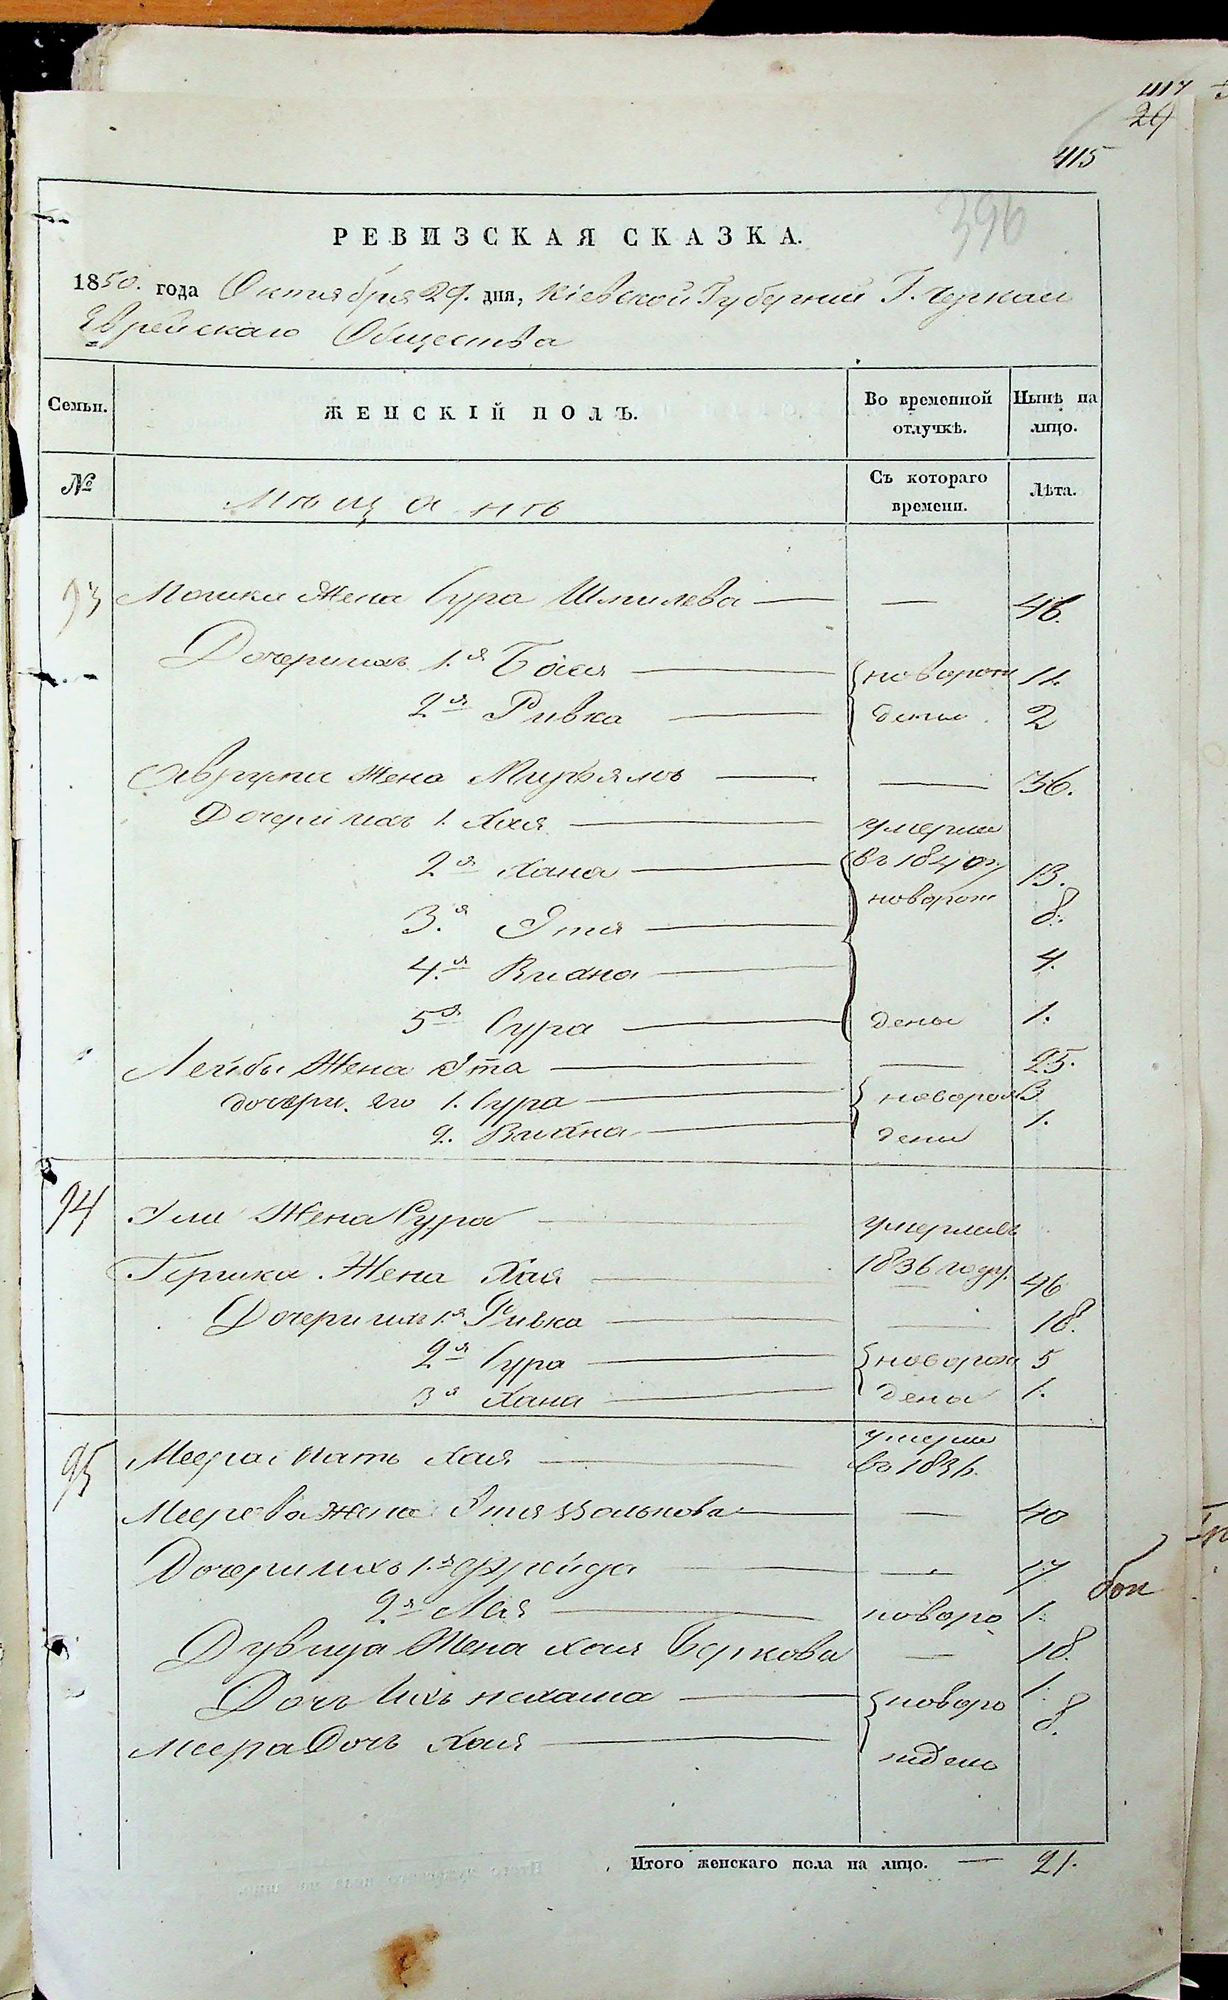 417
29
415
396
РЕВИЗСКАЯ СКАЗКА.
1850. года Октября 29. дня, Кіевской Губерніи Г. Черкас
Еврейскаго Общества
Семьи. ЖЕНСКІЙ ПОЛЪ. Во временной отлучкѣ. Нынѣ на лицо.
№ Мѣщанъ Съ котораго времени. Лѣта.
93 Мошки Жена Сура Шмилева — — 46.
Дочери ихъ 1.я Бася — новорож 11.
2я Ривка — дены 2
Аврума Жена Мирьямъ — — 36.
Дочери ихъ 1. Хая — умерла
2я Хана — въ 1840 г 13.
3.я Этя — новорож 8.
4.я Видна — 4.
5я Сура — дены 1.
Лейбы Жена Эта — — 25.
дочери его 1. Сура — новорож 3
2. Видна — дени 1.
94 Эли Жена Сура — умерла въ
Гершка Жена Хая — 1836 году. 46
Дочери ихъ 1.я Ривка — — 18.
2я Сура — новорож 5
3я Хана — дены 1.
95 Меера Мать Хая — умерла
въ 1836.
Меерова Жена Этя Волькова — — 40
Дочери ихъ 1.я Фрейда — — 17
2я Лея — новоро 1.
Дувида Жена Хая Беркова — 18.
Дочь Ихъ Нехама — новоро 1.
Меера Дочь Хая — 8.
ждены
Итого женскаго пола на лицо. — 21.